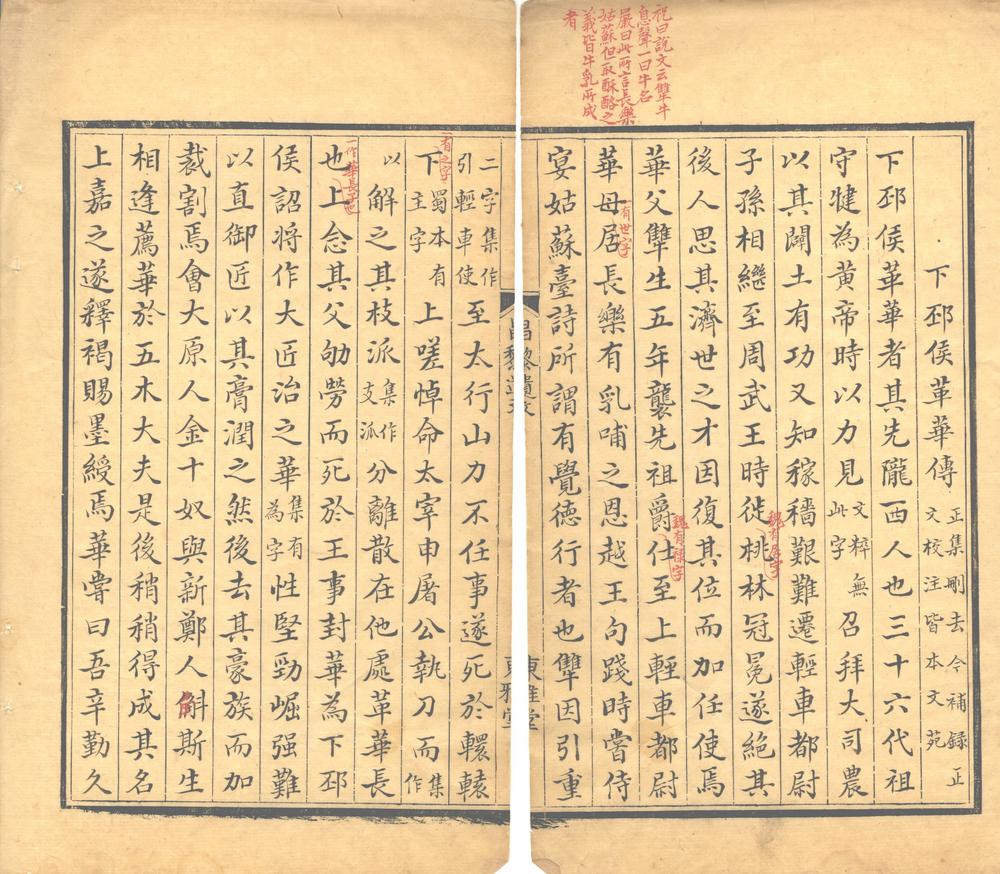 祝曰說文云犨牛
息聲一曰牛名
嚴曰此所言長樂
姑蘇但取酥酪之
義皆牛乳所成
者
下邳侯革華傳正集刪去今補錄正文校注皆本文苑
下邳侯革華者其先隴西人也三十六代祖
守犍為黄帝時以力見文粹無此字召拜大司農
以其闢土有功又知稼穡艱難遷輕車都尉
子孫相繼至周武王時徙桃林冠冕遂絕其
魏有居字
後人思其濟世之才因復其位而加任使焉
華父犨生五年襲先祖爵仕至上輕車都尉
魏有祿字
華母居長樂有乳哺之恩越王句踐時嘗侍
一有世字
宴姑蘇臺詩所謂有覺德行者也犨因引重
昌黎遺文
東雅堂
二字集作引輕車使至太行山力不任事遂死於轘轅
下蜀本有主字上嗟悼命太宰申屠公執刀而集作
一有之字
以解之其枝派集作支派分離散在他處革華長
也上念其父劬勞而死於王事封華為下邳
一作華長子也
侯詔將作大匠治之華集有為字性堅勁崛强難
以直御匠以其膏潤之然後去其豪族而加
裁割焉會大原人金十奴與新鄭人斛斯生
相逢薦華於五木大夫是後稍稍得成其名
上嘉之遂釋褐賜墨綬焉華嘗曰吾辛勤久